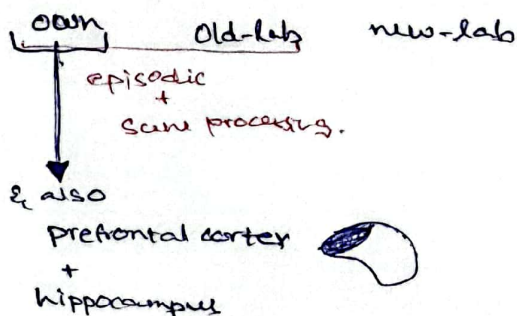 own old-lab new-lab
episodic
+
scene processing.
& also
prefrontal cortex
+
hippocampus